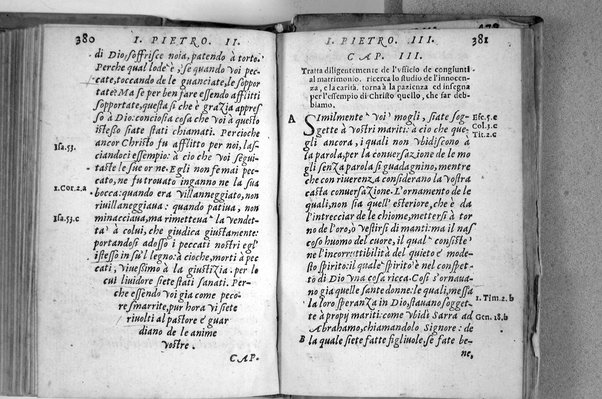 380 I. PIETRO. II.
di Dio, soffrisce noia, patendo à torto.
Perche qual lode è, se quando voi pec
cate, toccando de le guanciate, le soppor
tate? Ma se per ben fare essendo afflitti
sopportate, questa sì che è grazia appres
so à Dio: conciosia cosa che voi à questo
istesso siate stati chiamati. Percioche
Isa. 53.
ancor Christo fu afflitto per noi, las
ciandoci essempio: à cio che voi segui-
taste le sue orme. Egli non fe mai pec
cato, ne fu trovato inganno ne la sua
1. Cor. 2. a
bocca: quando era villanneggiato, non
rivillanneggiava: quando pativa, non
Isa. 53. c
minacciava, ma rimetteva la vendet-
ta à colui, che giudica giustamente:
portandosi adosso i peccati nostri egli
istesso in su'l legno: à cioche, morti à pec
cati, vivessimo à la giustizia. per lo
cui lividore siete stati sanati. Per-
che essendo voi gia come peco
re smarrite, pur hora vi siete
rivolti al pastore é guar
diano de le anime
vostre.
CAP.
I. PIETRO. III. 381
CAP. III
Tratta diligentemente de l'ufficio de congiunti
al matrimonio. ricerca lo studio de l'innocen-
za, e la carità. torna à la pazienza ed insegna
per l'essempio di Christo quello, che far deb-
biamo.
A
Similmente voi mogli, siate sog-
Efe. 5. e
gette à vostri mariti: à cio che que
Col. 3. c
gli ancora, i quali non ubidiscono à
Tit. 2. c
la parola, per la conversazione de le mo
gli senza parola si guadagnino, mentre
che con riverenza considerano la vostra
casta conversazione. L'ornamento de le
quali, non sia quell' esteriore, che è da
l'intrecciar de le chiome, mettersi à tor
no de l'oro, ò vestirsi di manti: ma il nas
coso huomo del cuore, il qual' consiste
ne l'incorruttibilità del quieto é mode-
sto spirito: il quale spirito è nel conspet-
to di Dio una cosa ricca. Cosi s'ornava-
no gia quelle sante donne: le quali, messa
1. Tim. 2. b
la loro speranza in Dio, stavano sogget-
te à propij mariti: come ubidì Sarra ad
Gen. 18. b
Abrahamo, chiamandolo Signore: de
B
la quale siete fatte figliuole, se fate be-
ne,